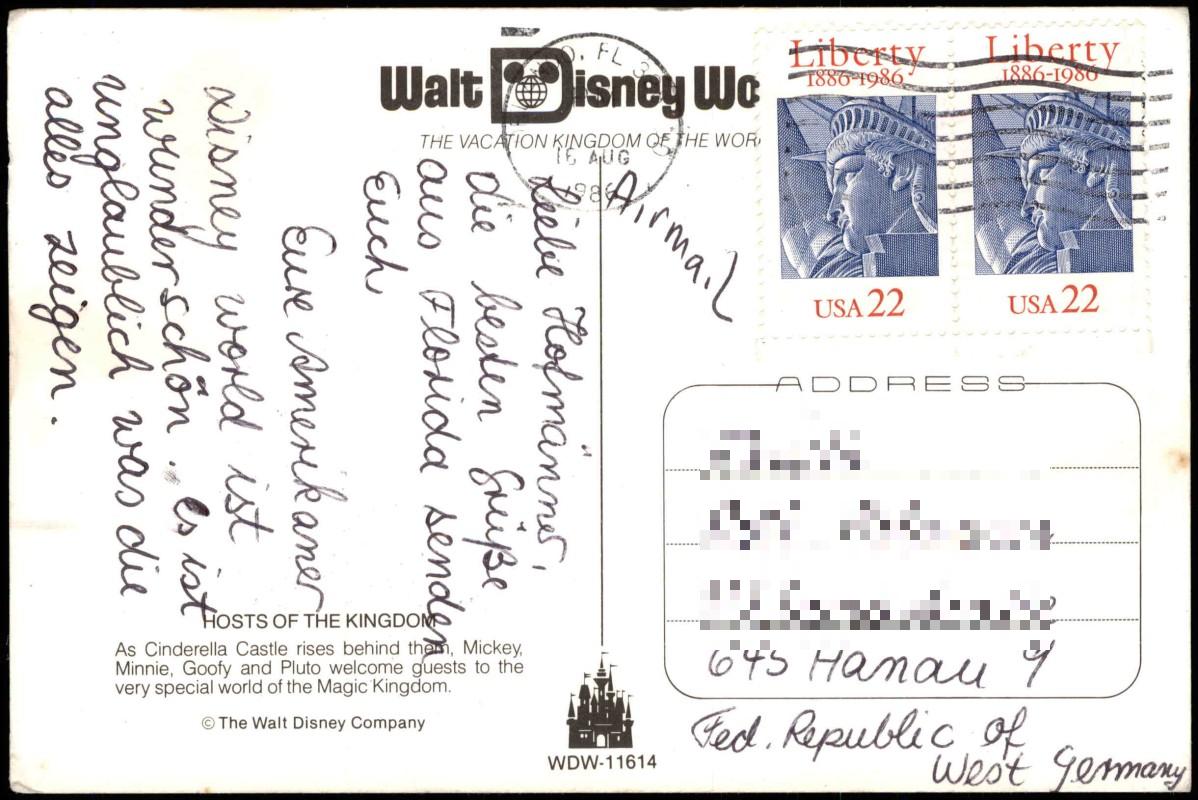 Walt Disney Wo
THE VACATION KINGDOM OF THE WOR
O. FL 3
16 AUG
1986
Liberty
1886-1986
USA 22
Liberty
1886-1986
USA 22
Airmail
Liebe Hofmänner,
die besten Grüße
aus Florida senden
Euch
Eure Amerikaner
Disney world ist
wunderschön. es ist
unglaublich was die
alles zeigen.
HOSTS OF THE KINGDOM
As Cinderella Castle rises behind them, Mickey,
Minnie, Goofy and Pluto welcome guests to the
very special world of the Magic Kingdom.
© The Walt Disney Company
WDW-11614
ADDRESS
645 Hanau 9
Fed. Republic of
West Germany